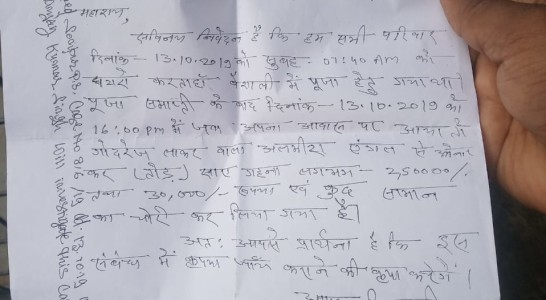 महाशय,
सविनय निवेदन है कि हम सभी परिवार
दिनांक - 13.10.2019 को सुबह : 01:40 AM को
करताहाँ वैशाली में पूजा हेतु गया था।
पूजा समाप्ती के बाद दिनांक - 13.10.2019 को
16:00 pm में जब अपना आवास पर आया तो
गोदरेज लाकर वाला अलमीरा एंगल से
कर (तोड़) सारा गहना लगभग - 250000/-
तथा 30,000/- रूपया एवं कुछ सामान
का चोरी कर लिया गया है।
अतः आपसे प्रार्थना है कि इस
संबंध में कृपया जाँच कराने की कृपा करेगें।
P.S. Case No 816/19 dt. 13.10.2019
Kumar Singh will investigate this Ca